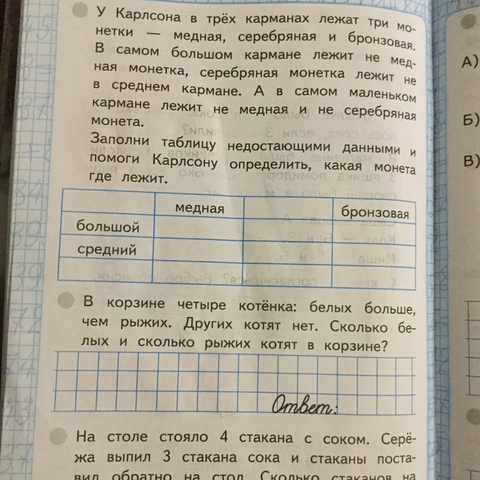 У Карлсона в трёх карманах лежат три мо-
нетки — медная, серебряная и бронзовая.
В самом большом кармане лежит не мед-
ная монетка, серебряная монетка лежит не
в среднем кармане. А в самом маленьком
кармане лежит не медная и не серебряная
монета.
Заполни таблицу недостающими данными и
помоги Карлсону определить, какая монета
где лежит.
медная бронзовая
большой
средний
В корзине четыре котёнка: белых больше,
чем рыжих. Других котят нет. Сколько бе-
лых и сколько рыжих котят в корзине?
Ответ:
На столе стояло 4 стакана с соком. Серё-
жа выпил 3 стакана сока и стаканы поста-
вил обратно на стол. Сколько стаканов на
А)
Б)
В)